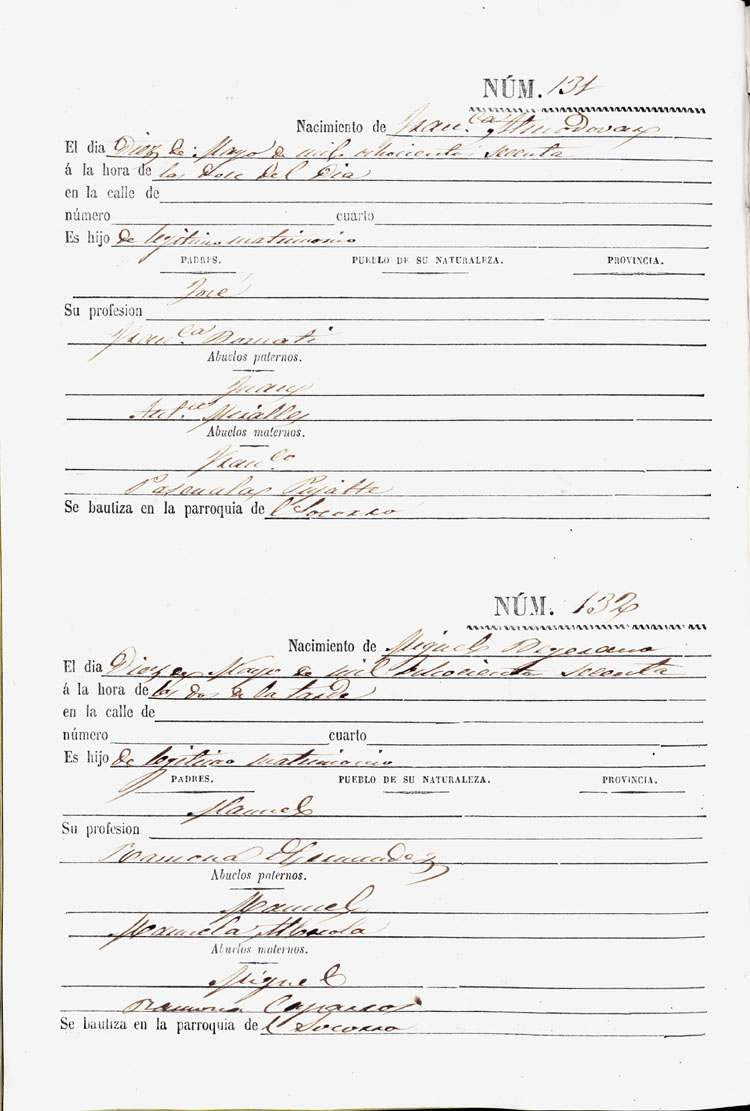 NÚM. 131
Nacimiento de Fran.ca Almodovar
El dia Diez de Mayo de mil ochocientos sesenta
á la hora de las doce del Dia
en la calle de
número cuarto
Es hijo de legitimo matrimonio
PADRES. PUEBLO DE SU NATURALEZA. PROVINCIA.
José
Su profesion
Fran.ca
Abuelos paternos.
Juan
Ant.a Miralles
Abuelos maternos.
Fran.co
Pascuala
Se bautiza en la parroquia de el Socorro
NÚM. 132
Nacimiento de Miguel
El dia Diez de Mayo de mil ochocientos sesenta
á la hora de las dos de la tarde
en la calle de
número cuarto
Es hijo de legitimo matrimonio
PADRES. PUEBLO DE SU NATURALEZA. PROVINCIA.
Manuel
Su profesion
Ramona Hernandez
Abuelos paternos.
Manuel
Manuela
Abuelos maternos.
Miguel
Ramona Caparros
Se bautiza en la parroquia de el Socorro